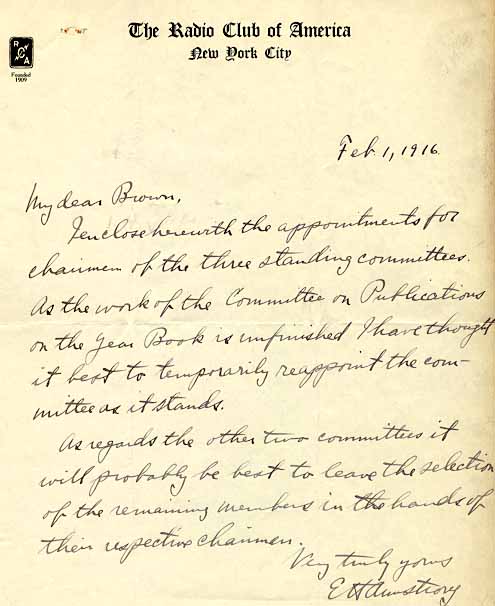 The Radio Club of America
New York City
R
C
A
Founded
1909
Feb. 1, 1916.
My dear Brown,
I enclose herewith the appointments for
chairmen of the three standing committees.
As the work of the Committee on Publications
on the Year Book is unfinished I have thought
it best to temporarily reappoint the com-
mittee as it stands.
As regards the other two committees it
will probably be best to leave the selection
of the remaining members in the hands of
their respective chairmen.
Very truly yours
E H Armstrong